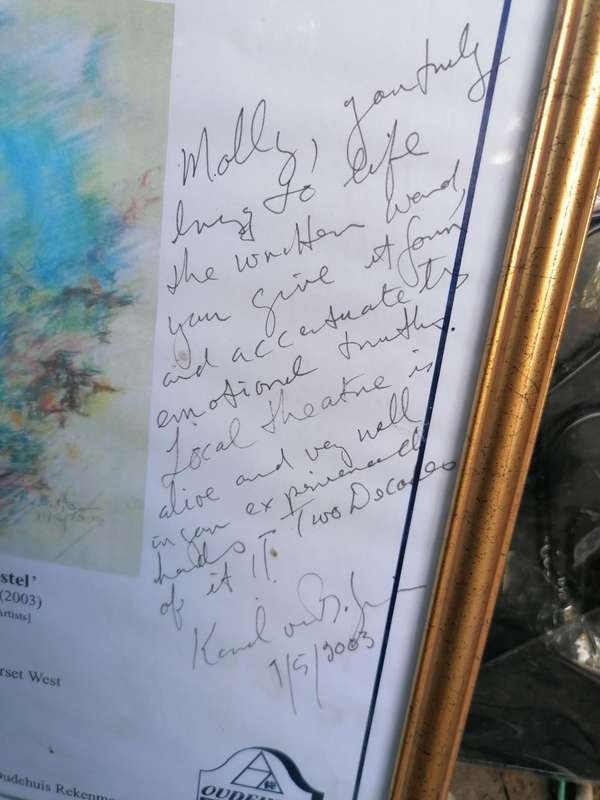 Molly, you truly
bring to life
the written word,
you give it form,
and accentuate its
emotional truths.
Local theatre is
alive and very well
in your experienced
hands - Two Decades
of it !!
7/5/2003
stel'
(2003)
Artists]
rset West
Oudehuis Rekenm
OUDEH